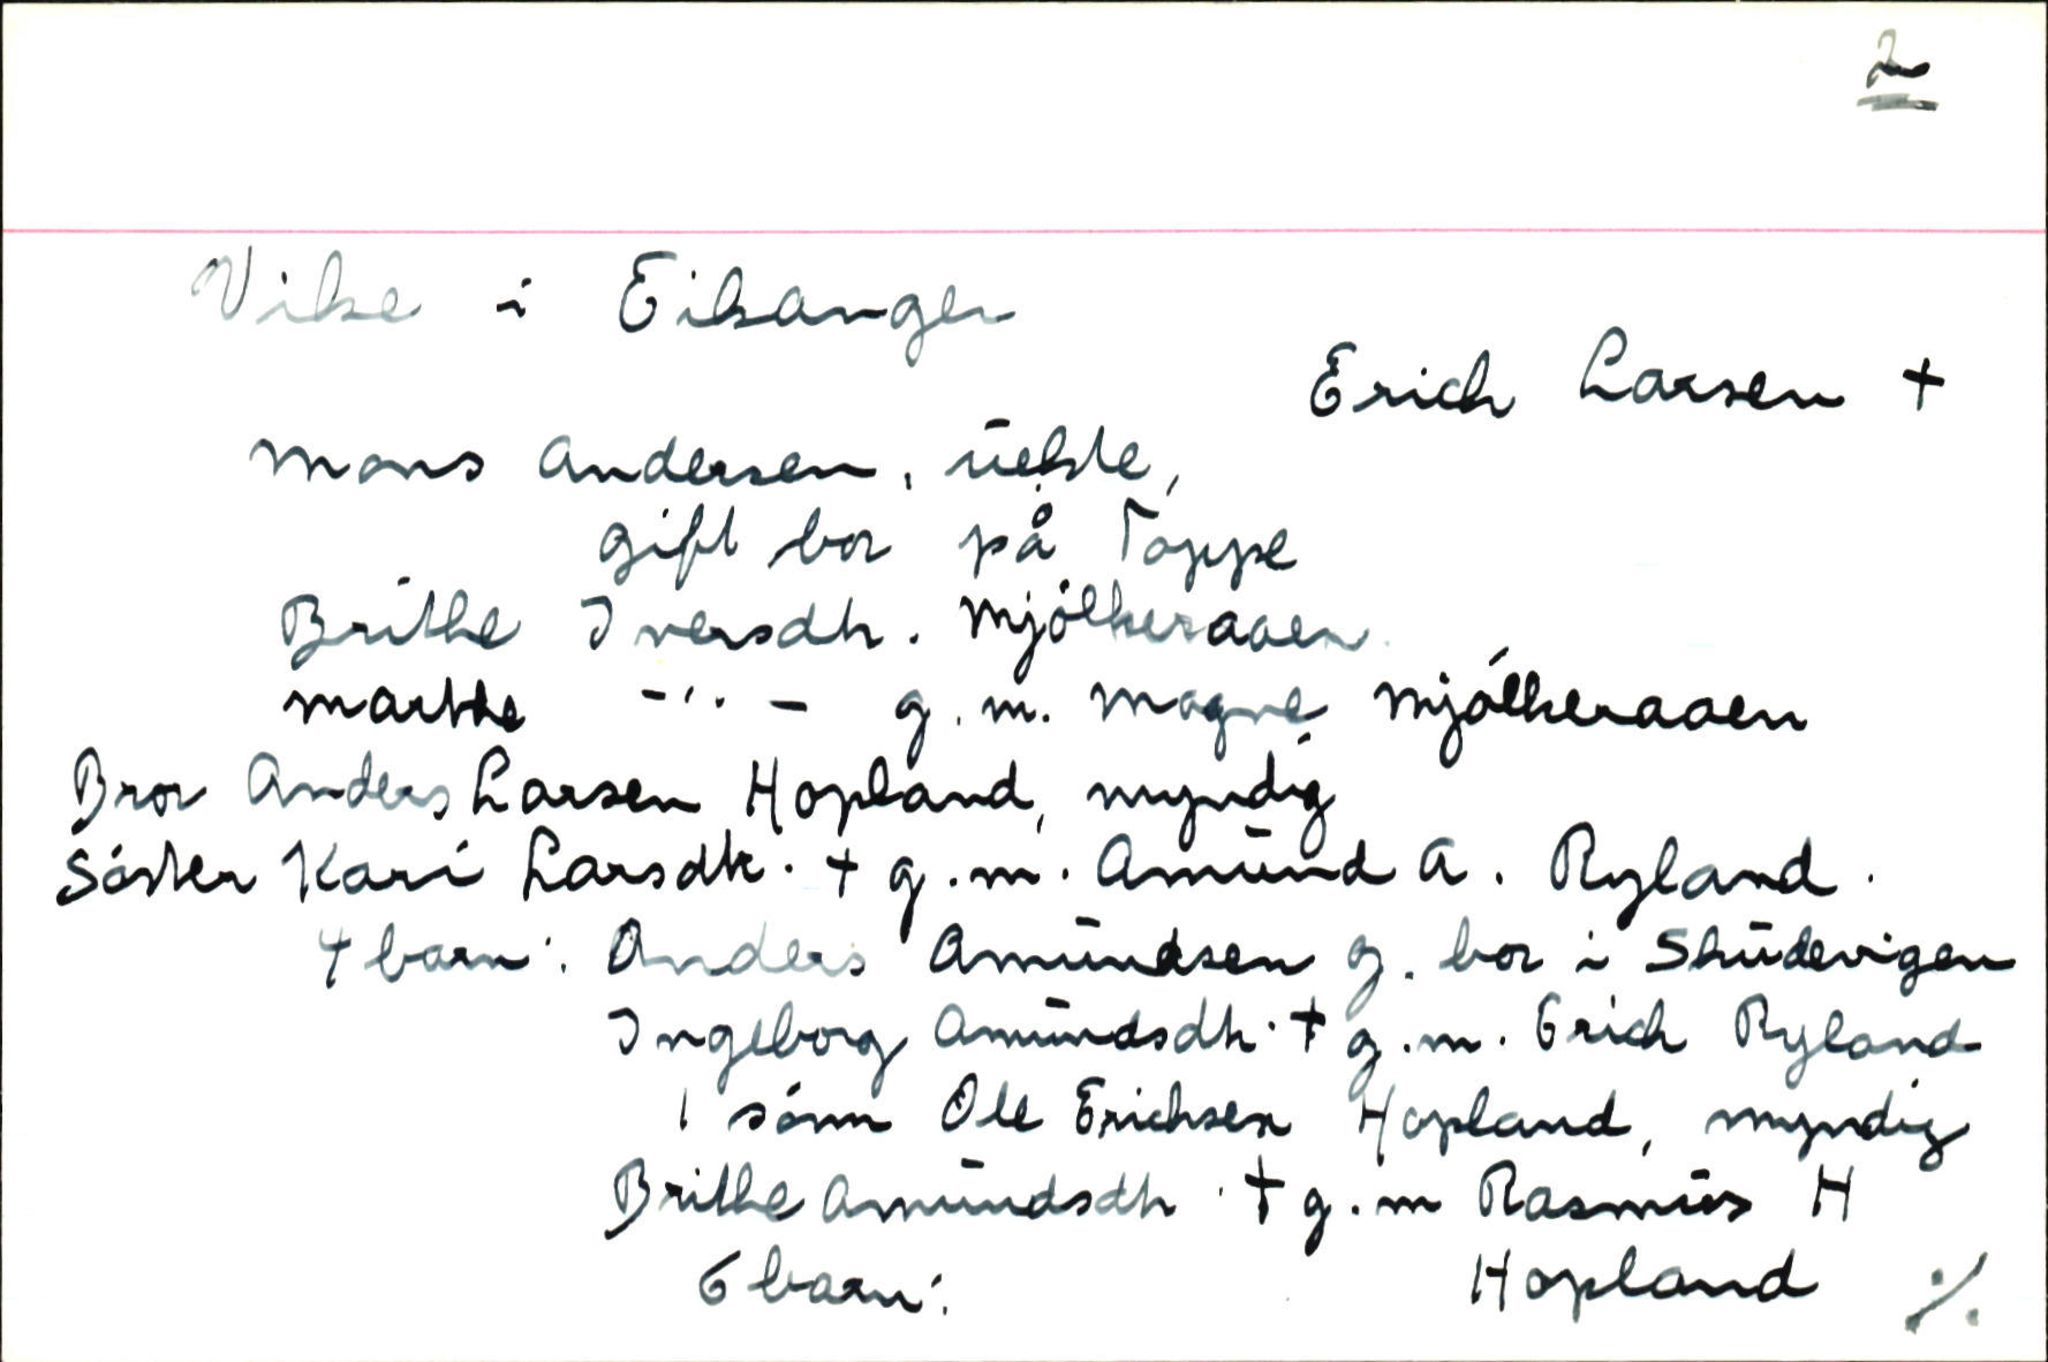 2
Vike i Eikanger
Erich Larsen +
Mons Andersen, uekte,
gift bor på Toppe
Brithe Iversdtr. Mjölkeraaen
Marthe -"- g.m. Magne Mjölkeraaen
Bror Anders Larsen Hopland, myndig
Söster Kari Larsdtr. + g.m. Amund A. Ryland.
4 barn: Anders Amundsen g. bor i Skudevigen
Ingeborg Amundsdtr. + g.m. Erich Ryland
1 sönn Ole Erichsen Hopland, myndig
Brithe Amundsdtr. + g.m Rasmus H
6 barn: Hopland ./.